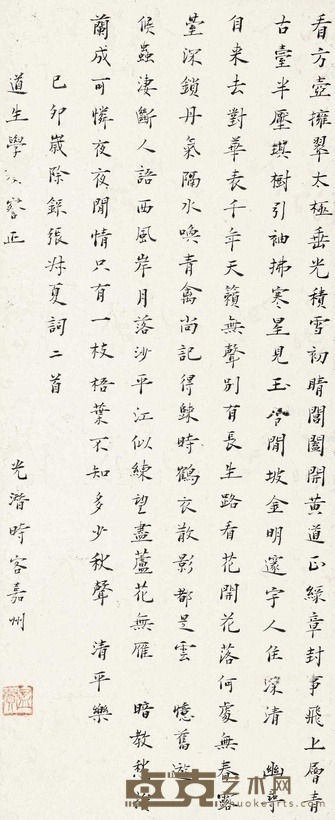 看方壺擁翠太極垂光積雪初晴閶闔開黃道正綠章封事飛上層青
古臺半壓琪樹引袖拂寒星見玉冷閒坡金明邃宇人住深清 幽尋
自来去對華表千年天籟無聲別有長生路看花開花落何處無春露
臺深鎖丹氣隔水喚青禽尚記得歸時鶴衣散影都是雲 憶舊遊
候蟲淒斷人語西風岸月落沙平江似練望盡蘆花無雁 暗教愁損
蘭成可憐夜夜閒情只有一枝梧葉不知多少秋聲 清平樂
己卯歲除錄張叔夏詞二首
道生學兄詧正
光潛時客嘉州